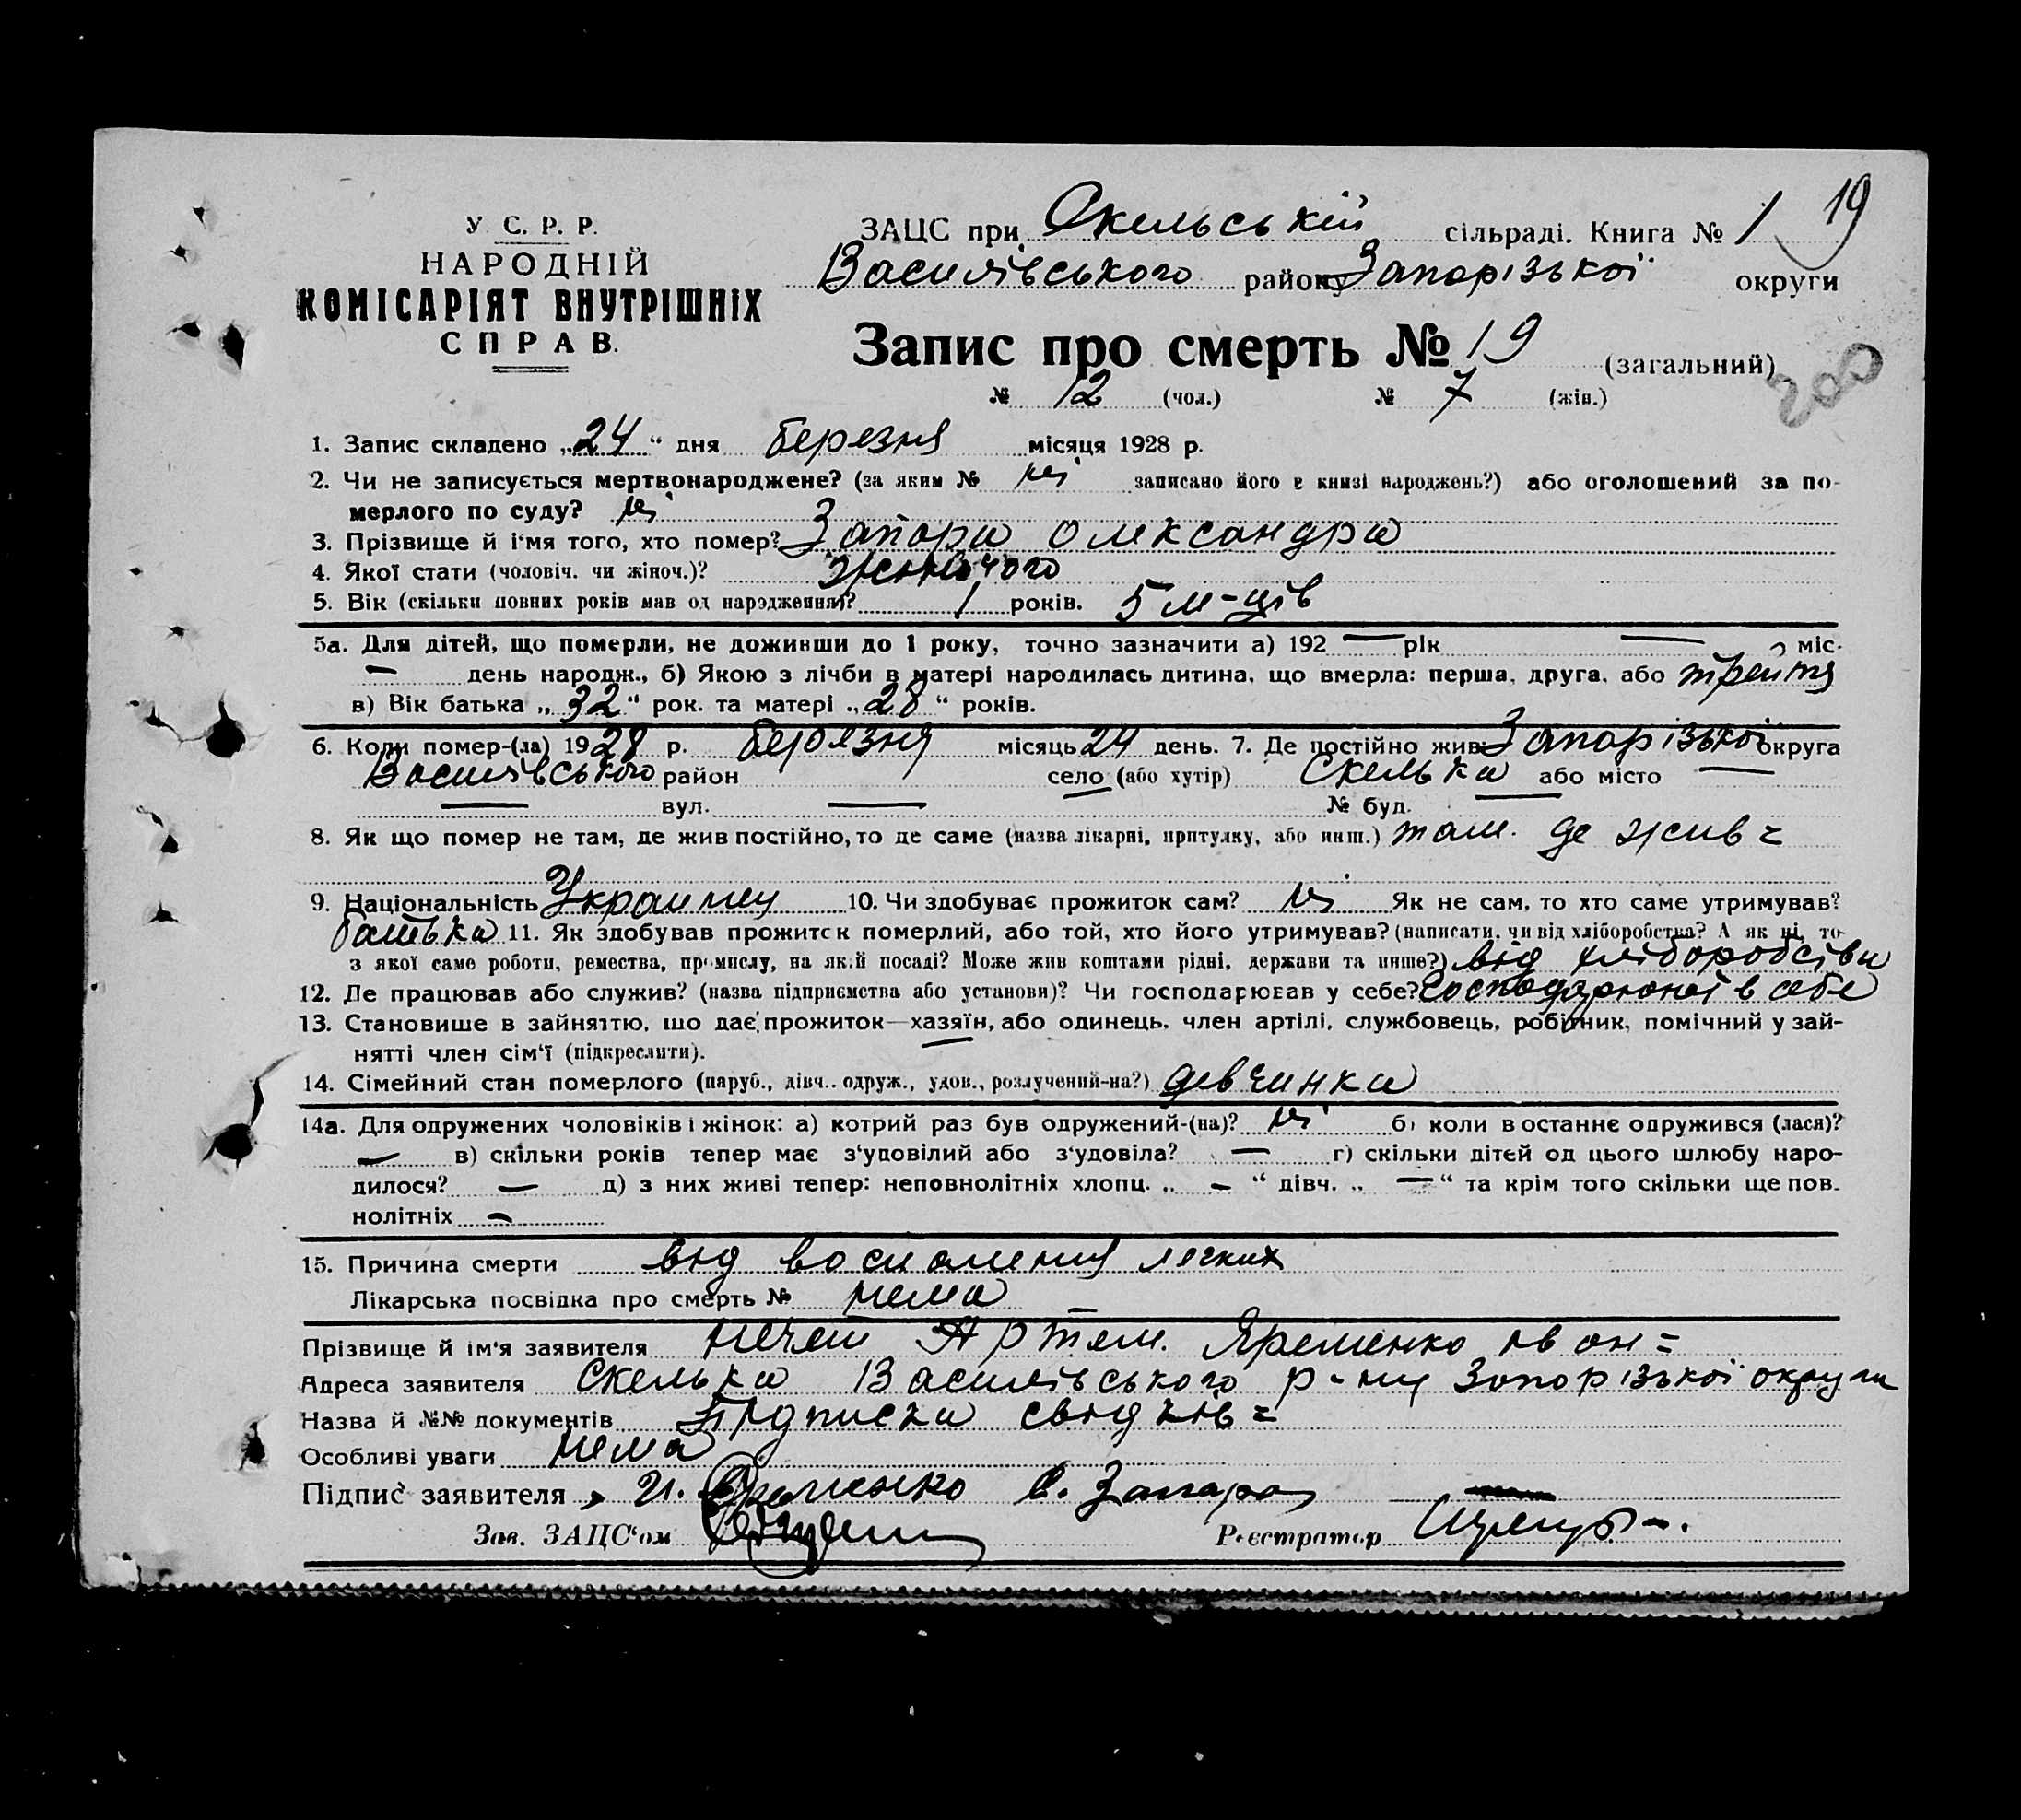 У. С. Р. Р.
НАРОДНІЙ
КОМІСАРІЯТ ВНУТРІШНІХ
СПРАВ.
19
ЗАЦС при Скельській сільраді. Книга № 1
Василівського району Запорізької округи
Запис про смерть № 19 (загальний)
200
№ 12 (чол.) № 7 (жін.)
1. Запис складено „24“ дня березня місяця 1928 р.
2. Чи не записується мертвонароджене? (за яким № ні записано його в книзі народжень?) або оголошений за по-
мерлого по суду? ні
3. Прізвище й і'мя того, хто помер? Запора Олександра
4. Якої стати (чоловіч. чи жіноч.)? жіночого
5. Вік (скільки повних років мав од народження)? 1 років. 5 м-ців
5а. Для дітей, що померли, не доживши до 1 року, точно зазначити а) 192 — рік — міс.
— день народж., б) Якою з лічби в матері народилась дитина, що вмерла: перша, друга, або третя
в) Вік батька „32“ рок. та матері „28“ років.
6. Коли помер-(ла) 1928 р. березня місяць 24 день. 7. Де постійно жив Запорізької округа
Василівського район село (або хутір) Скелька або місто —
— вул. — № буд. —
8. Як що помер не там, де жив постійно, то де саме (назва лікарні, притулку, або инш.) там. де жив =
9. Національність 10. Чи здобуває прожиток сам? ні Як не сам, то хто саме утримував?
батько 11. Як здобував прожиток померлий, або той, хто його утримував? (написати, чи від хліборобства? А як ні, то
з якої саме роботи, ремества, промислу, на якій посаді? Може жив коштами рідні, держави та инше?) від хліборобства
12. Де працював або служив? (назва підприємства або установи)? Чи господарював у себе? в себе
13. Становище в зайняттю, що дає прожиток—хазяїн, або одинець, член артілі, службовець, робітник, помічний у зай-
нятті член сім'ї (підкреслити).
14. Сімейний стан померлого (паруб., дівч., одруж., удов., розлучений-на?) девчинка
14а. Для одружених чоловіків і жінок: а) котрий раз був одружений-(на)? ні б) коли в останнє одружився (лася)?
— в) скільки років тепер має з'удовілий або з'удовіла? — г) скільки дітей од цього шлюбу наро-
дилося? — д) з них живі тепер: неповнолітніх хлопц. „ — “ дівч. „ — “ та крім того скільки ще пов-
нолітніх —
15. Причина смерти від воспаления легких
Лікарська посвідка про смерть № нема —
Прізвище й ім'я заявителя Артем. Яременко Іван =
Адреса заявителя Скелька Василівського р-ну Запорізької округи
Назва й №№ документів Підписка свідків =
Особливі уваги нема
Підпис заявителя И. Яременко Запара
Зав. ЗАЦС'ом Реєстратор